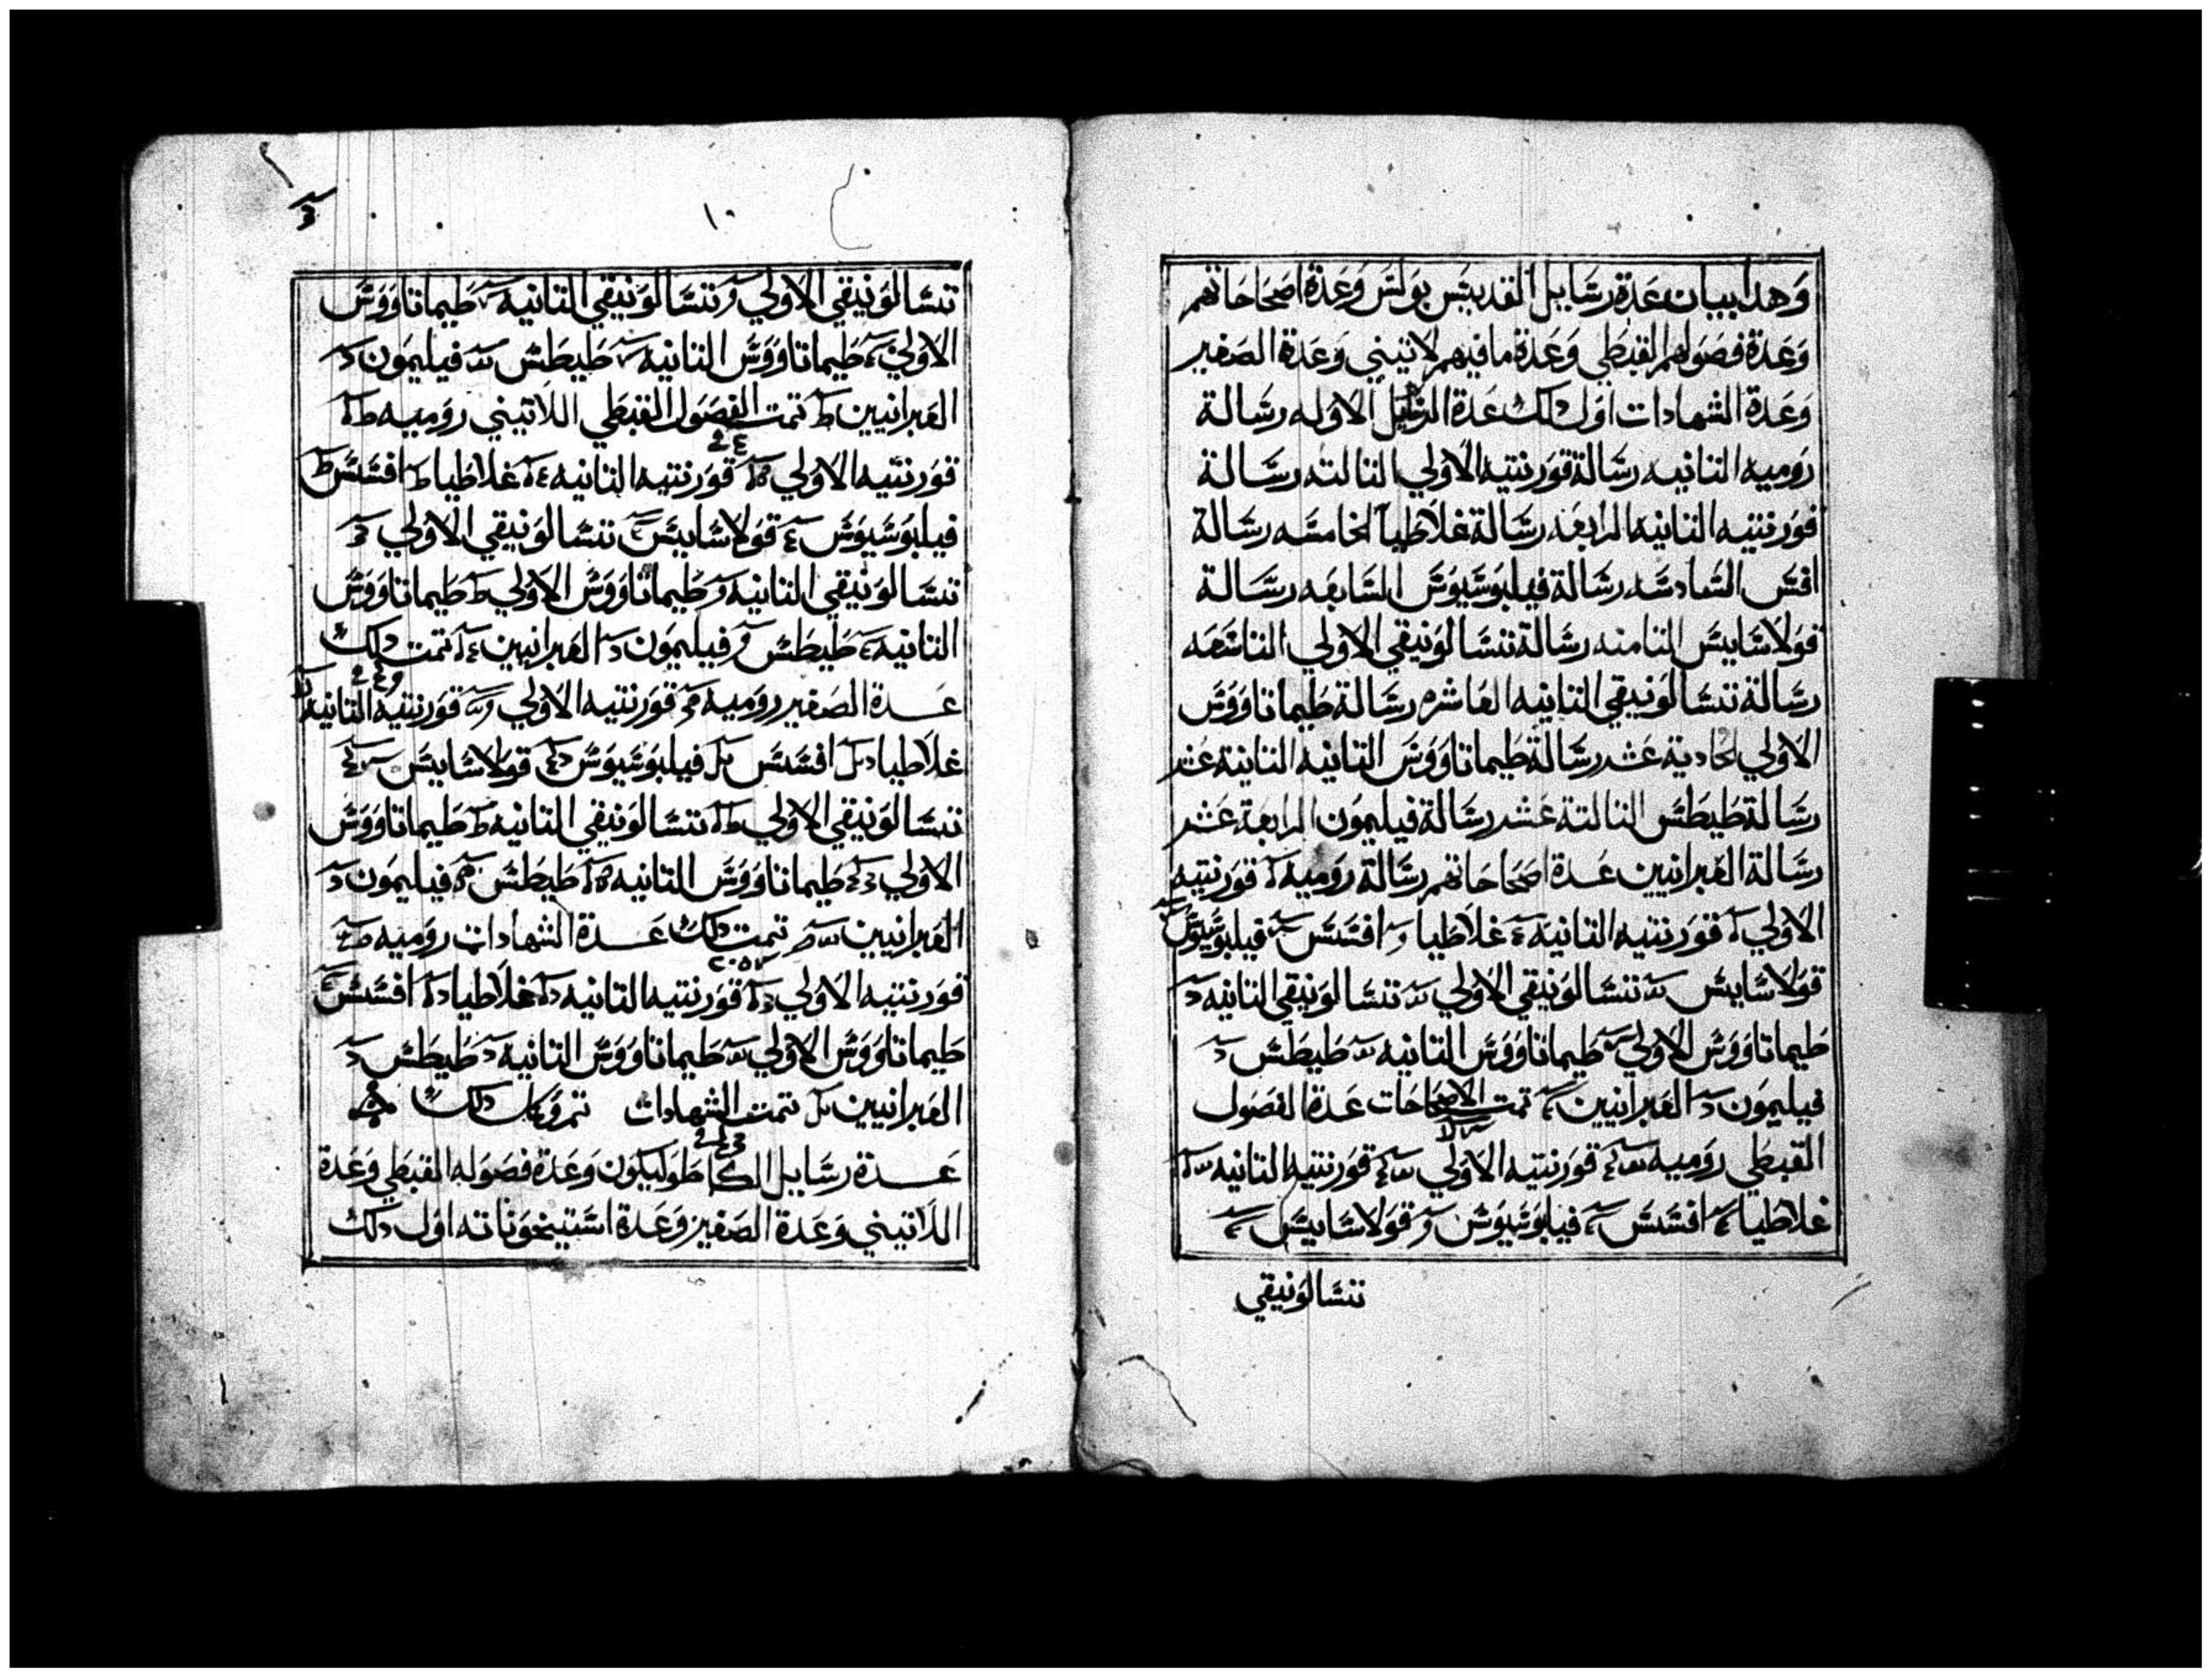 وهدا بيان عدة رسايل القديس بولس وعدة اصحاحاتهم
وعدة فصولهم القبطي وعدة ما فيهم لاتيني وعدة الصغير
وعدة الشهادات اول دلك عدة الرسايل الاوله رسالة
روميه التانيه رسالة قورنتيه الاولي التالته رسالة
قورنتيه التانيه الرابعه رسالة غلاطيا الخامسه رسالة
افسس السادسه رسالة فيلبوسيوس السابعه رسالة
قولاسايس التامنه رسالة تسالونيقي الاولي التاسعه
رسالة تسالونيقي التانيه العاشره رسالة طيماتاووس
الاولي الحادية عشر رسالة طيماتاووس التانيه التانية عشر
رسالة طيطس التالتة عشر رسالة فيليمون الرابعة عشر
رسالة العبرانيين عدة اصحاحاتهم رسالة روميه قورنتيه
الاولي قورنتيه التانيه غلاطيا افسس فيلبوسيوس
قولاسايس تسالونيقي الاولي تسالونيقي التانيه
طيماتاووس الاولي طيماتاووس التانيه طيطس
فيليمون العبرانيين تمت الاصحاحات عدة الفصول
القبطي روميه قورنتيه الاولي قورنتيه التانيه
غلاطيا افسس فيلبوسيوس قولاسايس
تسالونيقي
١٠
تسالونيقي الاولي تسالونيقي التانيه طيماتاووس
الاولي طيماتاووس التانيه طيطس فيليمون
العبرانيين تمت الفصول القبطي اللاتيني روميه
قورنتيه الاولي قورنتيه التانيه غلاطيا افسس
فيلبوسيوس قولاسايس تسالونيقي الاولي
تسالونيقي التانيه طيماتاووس الاولي طيماتاووس
التانيه طيطس فيليمون العبرانيين تمت دلك
عدة الصغير روميه قورنتيه الاولي قورنتيه التانيه
غلاطيا افسس فيلبوسيوس قولاسايس
تسالونيقي الاولي تسالونيقي التانيه طيماتاووس
الاولي طيماتاووس التانيه طيطس فيليمون
العبرانيين تمت دلك عدة الشهادات روميه
قورنتيه الاولي قورنتيه التانيه غلاطيا افسس
طيماتاووس الاولي طيماتاووس التانيه طيطس
العبرانيين تمت الشهادات تم وكل دلك
عدة رسايل الكاطوليكون وعدة فصوله القبطي وعدة
اللاتيني وعدة الصغير وعدة استيخوناته اول دلك